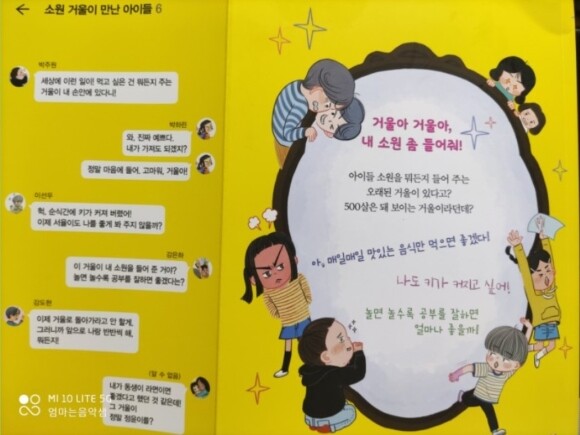 ← 소원 거울이 만난 아이들 6
박주원
세상에 이런 일이! 먹고 싶은 건 뭐든지 주는
거울이 내 손안에 있다니!
박하린
와, 진짜 예쁘다.
내가 가져도 되겠지?
정말 마음에 들어, 고마워, 거울아!
이선우
헉, 순식간에 키가 커져 버렸어!
이제 서율이도 나를 좋게 봐 주지 않을까?
김은하
이 거울이 내 소원을 들어 준 거야?
놀면 놀수록 공부를 잘하면 좋겠다는?
강도현
이제 거울로 돌아가라고 안 할게.
그러니까 앞으로 나랑 반반씩 해,
뭐든지!
(알 수 없음)
내가 동생이 라면이면
좋겠다고 했던 것 같은데!
그 거울이
정말 정윤이를?
거울아 거울아,
내 소원 좀 들어줘!
아이들 소원을 뭐든지 들어 주는
오래된 거울이 있다고?
500살은 돼 보이는 거울이라던데?
아, 매일매일 맛있는 음식만 먹으면 좋겠다!
나도 키가 커지고 싶어!
놀면 놀수록 공부를 잘하면
얼마나 좋을까!
MI 10 LITE 5G
엄마는음악샘